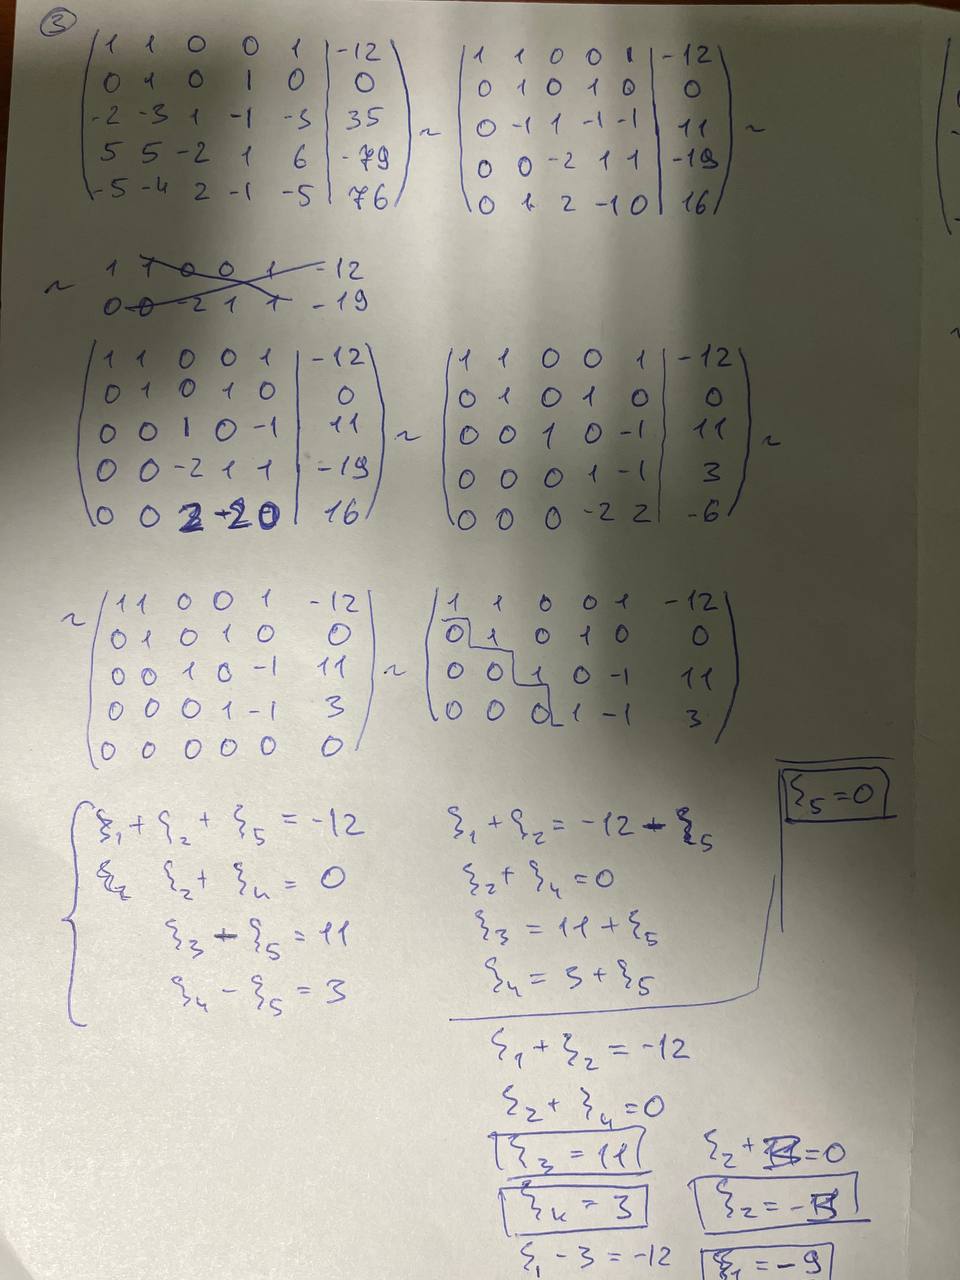 3
1 1 0 0 1 | -12
0 1 0 1 0 | 0
-2 -3 1 -1 -3 | 35
5 5 -2 1 6 | -79
-5 -4 2 -1 -5 | 76
~
1 1 0 0 1 | -12
0 1 0 1 0 | 0
0 -1 1 -1 -1 | 11
0 0 -2 1 1 | -19
0 1 2 -1 0 | 16
~
~ 1 1 0 0 1 -12
0 0 -2 1 1 -19
1 1 0 0 1 | -12
0 1 0 1 0 | 0
0 0 1 0 -1 | 11
0 0 -2 1 1 | -19
0 0 2 -2 0 | 16
~
1 1 0 0 1 | -12
0 1 0 1 0 | 0
0 0 1 0 -1 | 11
0 0 0 1 -1 | 3
0 0 0 -2 2 | -6
~
~ 1 1 0 0 1 -12
0 1 0 1 0 0
0 0 1 0 -1 11
0 0 0 1 -1 3
0 0 0 0 0 0
~
1 1 0 0 1 -12
0 1 0 1 0 0
0 0 1 0 -1 11
0 0 0 1 -1 3
ξ₁ + ξ₂ + ξ₅ = -12
ξ₂ + ξ₄ = 0
ξ₃ - ξ₅ = 11
ξ₄ - ξ₅ = 3
ξ₁ + ξ₂ = -12 - ξ₅
ξ₂ + ξ₄ = 0
ξ₃ = 11 + ξ₅
ξ₄ = 3 + ξ₅
ξ₅ = 0
ξ₁ + ξ₂ = -12
ξ₂ + ξ₄ = 0
ξ₃ = 11
ξ₄ = 3
ξ₁ - 3 = -12
ξ₂ + 3 = 0
ξ₂ = -3
ξ₁ = -9